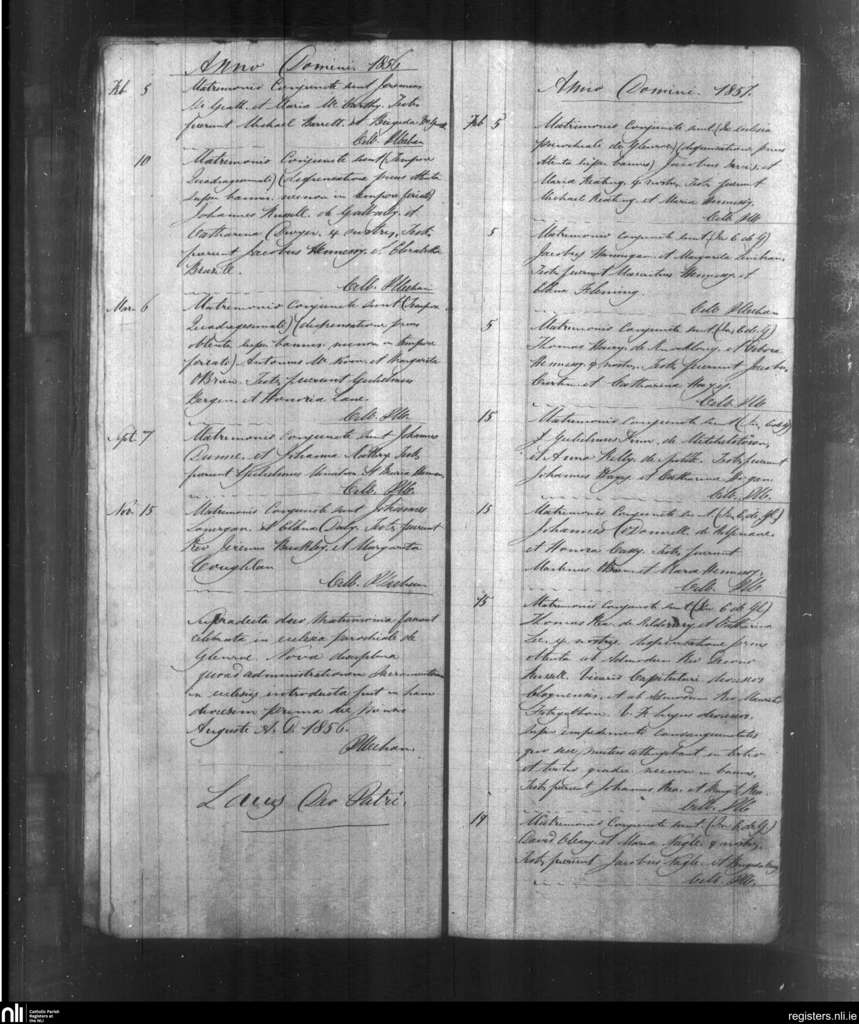 Anno Domini 1856
Feb 5 Matrimonio Conjuncti sunt Jeremias
Mc Grath et Maria Mc Carthy. Test.
fuerunt Michael Barrett et Brigida
Celb. P Meehan
10 Matrimonio Conjuncti sunt (Tempore
Quadragesimali) (dispensatione prius obtenta
super bannis necnon in tempore feriato)
Johannes Russell de Galbally et
Catharina Dwyer, ex nostris, Test.
fuerunt Jacobus Hennessy et Elizabetha
Celb. P Meehan
Mar. 6 Matrimonio Conjuncti sunt (Tempore
Quadragesimali) (dispensatione prius
obtenta super bannis necnon in tempore
feriato) Antonius Mc et Margarita
O'Brien. Test. fuerunt Gulielmus
Bergin et Honoria Lane.
Celb. PM.
Sept. 7 Matrimonio Conjuncti sunt Johannes
Dunne et Johanna Test.
fuerunt Gulielmus et Maria
Celb. PM.
Nov. 15 Matrimonio Conjuncti sunt Johannes
Lonergan et Ellena Daly. Test. fuerunt
Rev Jeremia Buckley et Margarita
Coughlan
Celb. P Meehan
Supradicta duo matrimonia fuerunt
celebrata in ecclesia parochiali de
Glenroe. Nova disciplina
quoad administrationem Sacramentorum
in ecclesiis introducta fuit in hanc
diocesim prima die
Augusti A. D. 1856.
P Meehan.
Laus Deo Patri.
Anno Domini. 1857.
Feb 5 Matrimonio Conjuncti sunt (In ecclesia
parochiali de Glenroe) (dispensatione prius
obtenta super bannis) Jacobus et
Maria Keating, ex nostris, Test. fuerunt
Michael Keating et Maria Hennessy.
Celb. PM.
5 Matrimonio Conjuncti sunt (In E. de G)
Jacobus Hannigan et Margarita Linehan
Test. fuerunt Mauritius Hennessy et
Ellena Fleming.
Celb. P Meehan
5 Matrimonio Conjuncti sunt (In E. de G)
Thomas de et Debora
Hennessy ex nostris. Test. fuerunt Jacobus
et Catharina Hayes.
Celb. PM
15 Matrimonio Conjuncti sunt (In E. de G)
Gulielmus Finn, de Mitchelstown,
et Anna Kelly de Test. fuerunt
Johannes Hayes et Catharina
Celb. PM.
15 Matrimonio Conjuncti sunt (In E. de Gl)
Johannes O'Donnell de Kilfinane
et Honora Casey. Test. fuerunt
Martinus et Maria Hennessy.
Celb. PM
15 Matrimonio Conjuncti sunt (In E. de Gl)
Thomas Rea de et Catharina
ex nostris dispensatione prius
obtenta ab Admodum Rev
Russell Vicario Capitulari diocesos
Cloynensis, et ab Admodum Rev
Fitzgibbon V. F. hujus diocesos.
super impedimento consanguinitatis
quo se mutuo attingebant in tertio
et tertio gradu necnon in bannis,
Test. fuerunt Johannes Rea et Rea.
Celb. PM
19 Matrimonio Conjuncti sunt (In E. de G)
David Cleary et Maria Nagle ex nostris.
Test. fuerunt Jacobus Nagle et Brigida
Celb. PM.
nli
Catholic Parish
Registers at
the NLI
registers.nli.ie